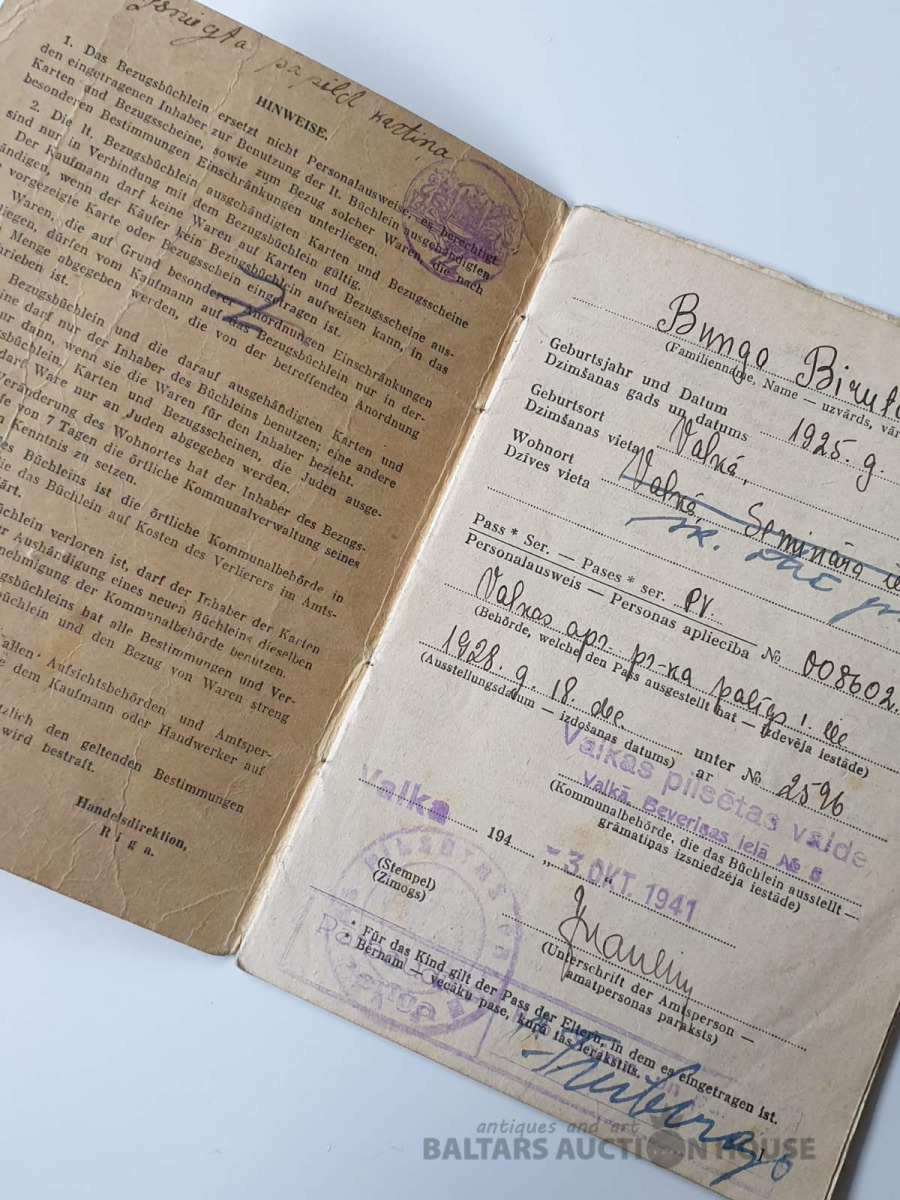 Izsniegta papild kartiņa
HINWEISE.
1. Das Bezugsbüchlein ersetzt nicht Personalausweise, es berechtigt
den eingetragenen Inhaber zur Benutzung der lt. Büchlein ausgehändigten
Karten und Bezugsscheine, sowie zum Bezug solcher Waren, die nach
besonderen Bestimmungen Einschränkungen unterliegen.
2. Die lt. Bezugsbüchlein ausgehändigten Karten und Bezugsscheine
sind nur in Verbindung mit dem Bezugsbüchlein gültig.
Der Kaufmann darf keine Waren auf Karten und Bezugsscheine aus-
händigen, wenn der Käufer kein Bezugsbüchlein aufweisen kann, in das
vorgezeigte Karte oder Bezugsschein eingetragen ist.
Waren, die auf Grund besonderer Anordnungen Einschränkungen
liegen, dürfen vom Kaufmann auf das Bezugsbüchlein nur in der-
Menge abgegeben werden, die von der betreffenden Anordnung
rieben ist.
Bezugsbüchlein und die darauf ausgehändigten Karten und
eine darf nur der Inhaber des Büchleins benutzen; eine andere
ur dann, wenn sie die Waren für den Inhaber bezieht.
sbüchlein, Karten und Bezugsscheinen, die Juden ausge-
darf Ware nur an Juden abgegeben werden.
Veränderung des Wohnortes hat der Inhaber des Bezugs-
fe von 7 Tagen die örtliche Kommunalverwaltung seines
n Kenntnis zu setzen.
des Büchleins ist die örtliche Kommunalbehörde in
die das Büchlein auf Kosten des Verlierers im Amts-
ärt.
üchlein verloren ist, darf der Inhaber der Karten
r Aushändigung eines neuen Büchleins dieselben
nehmigung der Kommunalbehörde benützen.
ugsbüchleins hat alle Bestimmungen und Ver-
büchlein und den Bezug von Waren streng
allen, Aufsichtsbehörden und Amtsper-
e dem Kaufmann oder Handwerker auf
tzlich den geltenden Bestimmungen
wird bestraft.
Handelsdirektion,
Riga.
Bunga Biruta
(Familienname, Name — uzvārds, vār
Geburtsjahr und Datum
Dzimšanas gads un datums 1925. g.
Geburtsort
Dzimšanas vieta Valkā,
Wohnort
Dzīves vieta Valkā, Semināra ie
Pass * Ser. — Pases * ser. PV.
Personalausweis — Personas apliecība № 008602.
Valkas apr. pr-ka palīgs I. iec
(Behörde, welche den Pass ausgestellt hat — izdevēja iestāde)
1928. g. 18. dec unter № ar 2596
(Ausstellungsdatum — izdošanas datums)
Valkas pilsētas valde
Valkā, Beverīņas ielā № 5
(Kommunalbehörde, die das Büchlein ausstellt —
grāmatiņas izsniedzēja iestāde)
Valka 194
- 3. OKT. 1941
(Stempel)
(Zīmogs)
(Unterschrift der Amtsperson —
amatpersonas paraksts)
* Für das Kind gilt der Pass der Eltern, in dem es eingetragen ist.
* Bērnam — vecāku pase, kurā tas ierakstīts.
1
antiques and art
BALTARS AUCTIONHOUSE